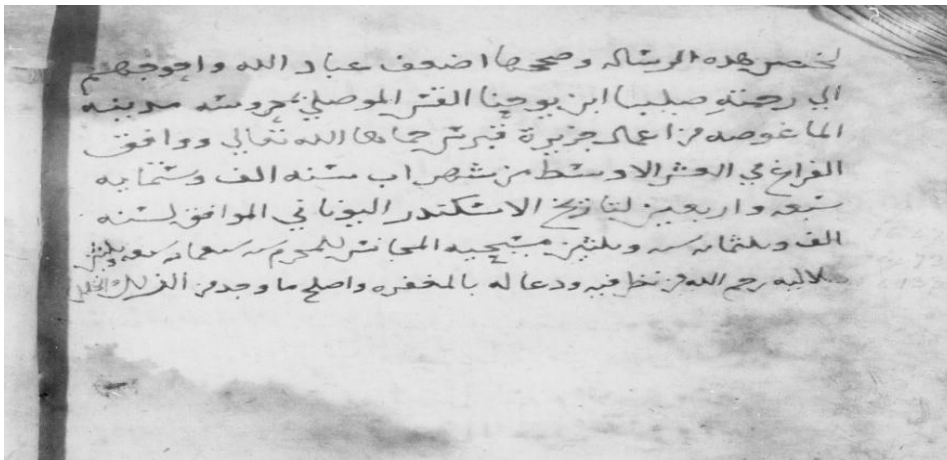 لخص هذه الرساله وصححها اضعف عباد الله واحوجهم
الي رحمته صليبا ابن يوحنا القس الموصلي بمحروسه مدينه
الماغوصه من اعمال جزيرة قبرس حماها الله تعالي ووافق
الفراغ في العشر الاوسط من شهر اب سنه الف وستمايه
سبعه واربعين لتاريخ الاسكندر اليوناني الموافق لسنه
الف وثلثمايه سته وثلثين مسيحيه المجانس للمحرم سنه سبعمايه سبعه وثلثين
هلاليه رحم الله من نظر فيه ودعا له بالمغفره واصلح ما وجد من الزلل والخلل